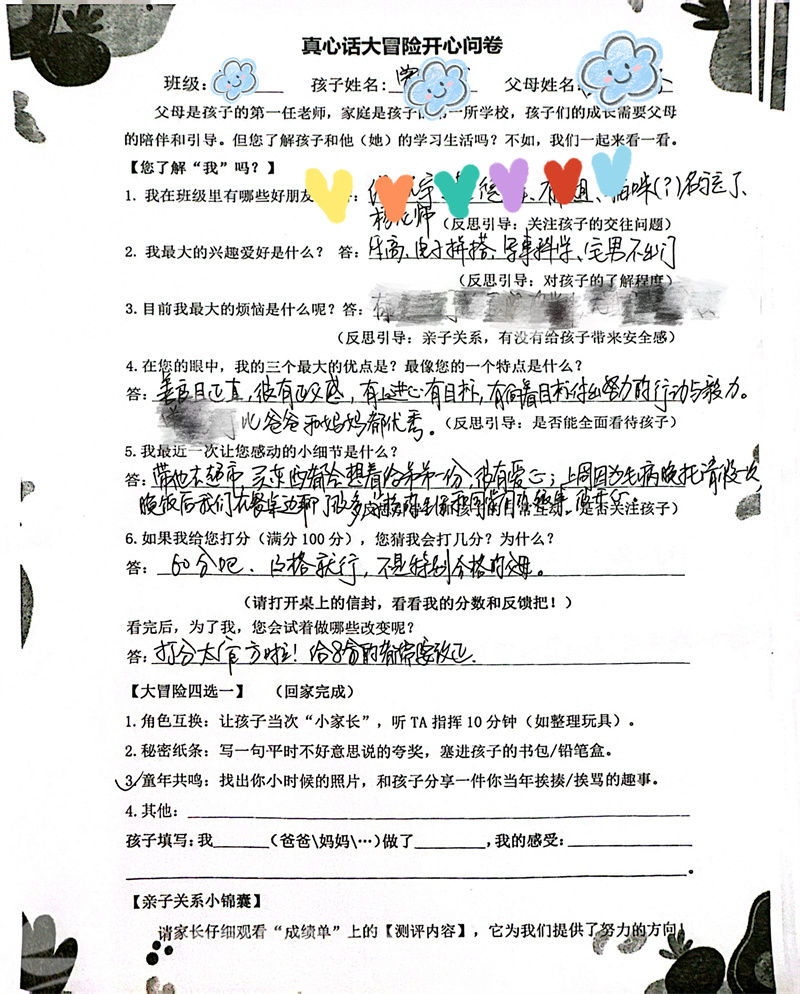 真心话大冒险开心问卷
班级: 孩子姓名: 父母姓名:
父母是孩子的第一任老师，家庭是孩子的第一所学校，孩子们的成长需要父母
的陪伴和引导。但您了解孩子和他（她）的学习生活吗？不如，我们一起来看一看。
【您了解“我”吗？】
1. 我在班级里有哪些好朋友 答: 猫咪(?)名忘了、
老师 （反思引导：关注孩子的交往问题）
2. 我最大的兴趣爱好是什么？ 答: 乐高、电子拼搭、军事科学、宅男不出门
（反思引导：对孩子的了解程度）
3. 目前我最大的烦恼是什么呢？答:
（反思引导：亲子关系，有没有给孩子带来安全感）
4. 在您的眼中，我的三个最大的优点是？最像您的一个特点是什么？
答: 善良且正直，很有正义感，有上进心有目标，有向着目标付出努力的行动与毅力。
比爸爸和妈妈都优秀。（反思引导：是否能全面看待孩子）
5. 我最近一次让您感动的小细节是什么？
答: 带他去超市，买东西都会想着给弟弟一份，很有爱心；上周因为生病晚托请假一次，
晚饭后我们在餐桌边聊了很多 是否关注孩子）
6. 如果我给您打分（满分 100 分），您猜我会打几分？为什么？
答: 60分吧，及格就行，不是特别合格的父母。
（请打开桌上的信封，看看我的分数和反馈把！）
看完后，为了我，您会试着做哪些改变呢？
答: 打分太官方啦！
【大冒险四选一】 （回家完成）
1. 角色互换：让孩子当次“小家长”，听 TA 指挥 10 分钟（如整理玩具）。
2. 秘密纸条：写一句平时不好意思说的夸奖，塞进孩子的书包/铅笔盒。
3. 童年共鸣：找出你小时候的照片，和孩子分享一件你当年挨揍/挨骂的趣事。
4. 其他：
孩子填写：我______（爸爸\妈妈\…）做了________，我的感受：
。
【亲子关系小锦囊】
请家长仔细观看“成绩单”上的【测评内容】，它为我们提供了努力的方向！